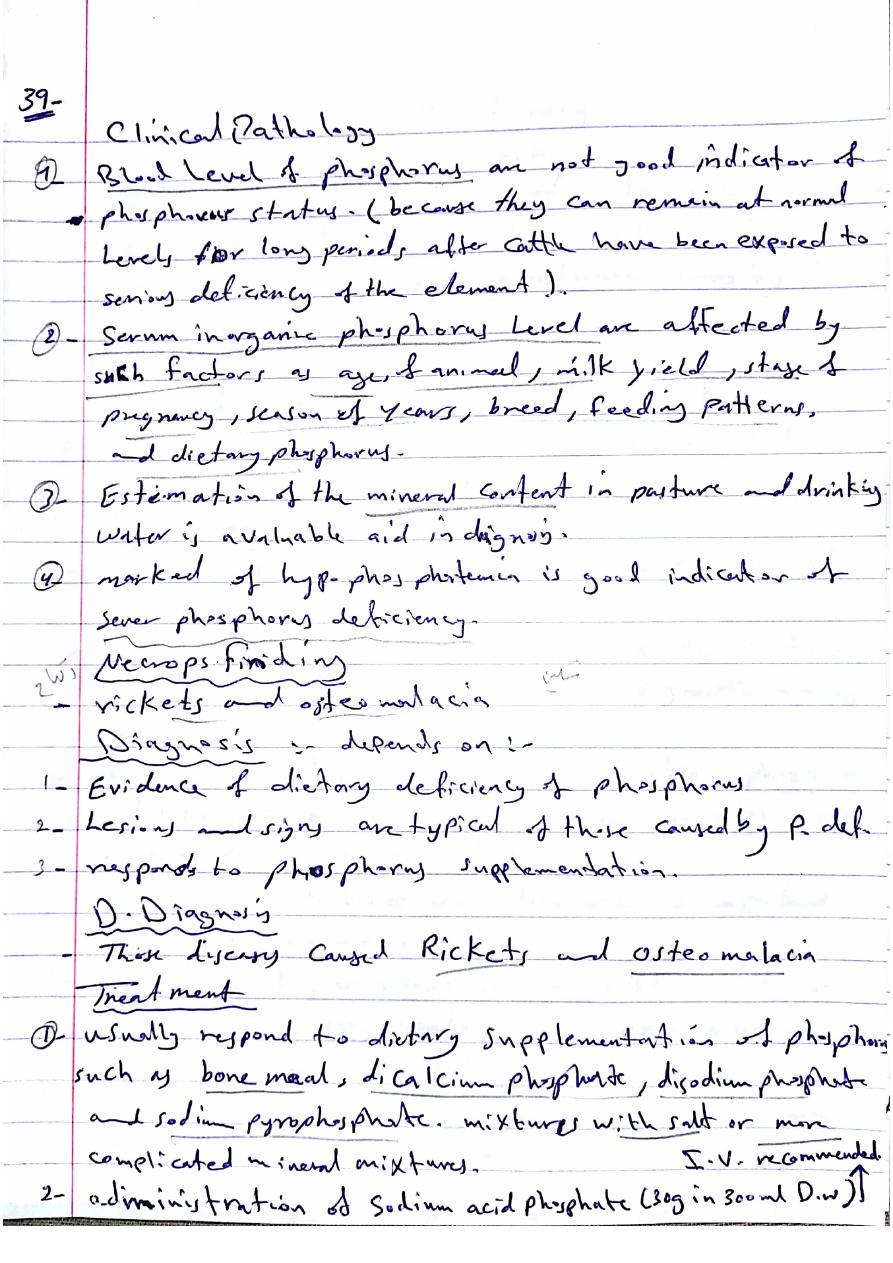 39-
Clinical Pathology
① Blood Level of phosphorus are not good indicator of
phosphorus status. (because they can remain at normal
Levels for long periods after cattle have been exposed to
serious deficiency of the element).
②- Serum inorganic phosphorus Level are affected by
such factors as age of animal, milk yield, stage of
pregnancy, season of years, breed, feeding patterns,
and dietary phosphorus.
③- Estimation of the mineral content in pasture and drinking
water is a valuable aid in dignosis.
④ marked of hypo-phosphatemia is good indicator of
sever phosphorus deficiency.
Necrops finiding
- rickets and osteomalacia
Diagnosis :- depends on :-
1- Evidence of dietary deficiency of phosphorus
2- Lesions and signs are typical of those caused by p. def.
3- responds to phosphorus supplementation.
D. Diagnosis
- Those diseases caused Rickets and osteomalacia
Treatment
①- usually respond to dietary supplementation of phosphorus
such as bone meal, dicalcium phosphate, disodium phosphate
and sodium pyrophosphate. mixtures with salt or more
complicated mineral mixtures. I.V. recommended.
2- administration of Sodium acid phosphate (30g in 300ml D.w)↑